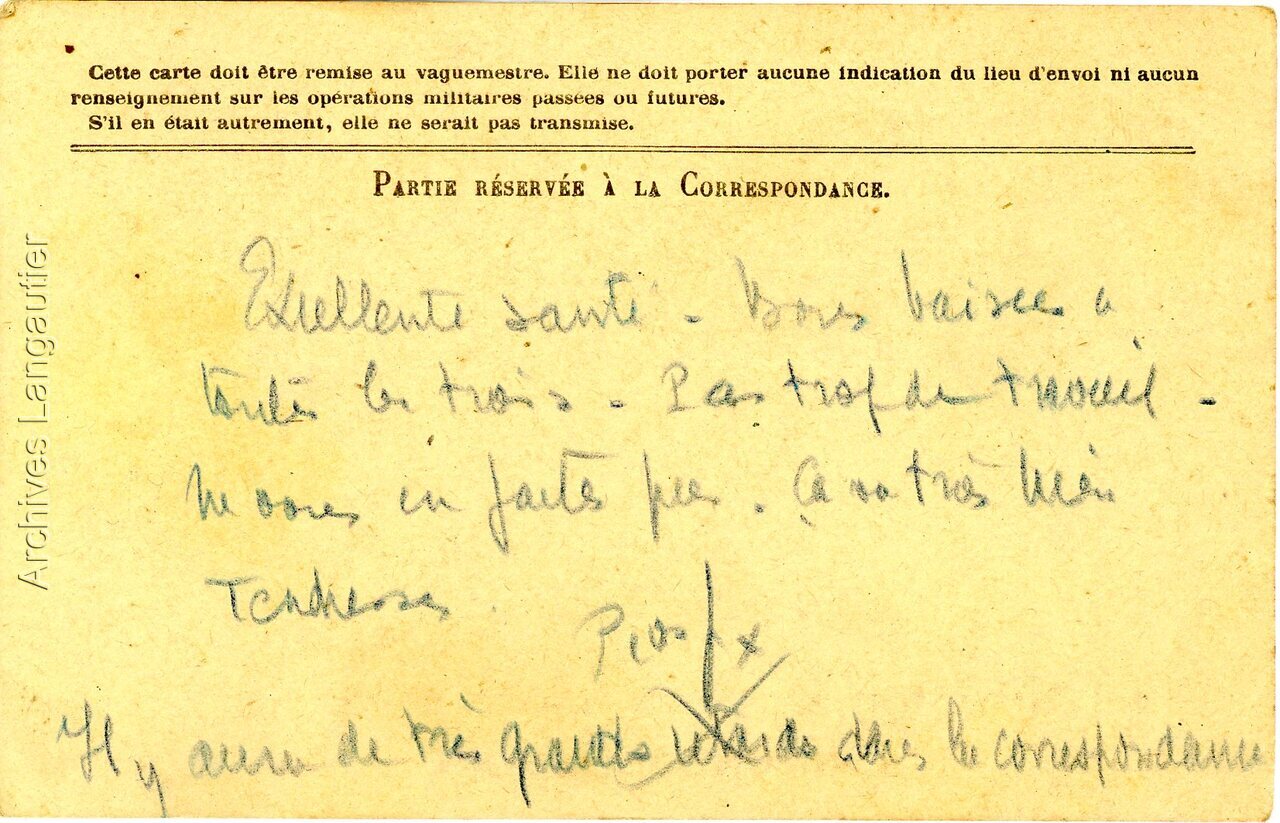 Cette carte doit être remise au vaguemestre. Elle ne doit porter aucune indication du lieu d'envoi ni aucun
renseignement sur les opérations militaires passées ou futures.
S'il en était autrement, elle ne serait pas transmise.
PARTIE RÉSERVÉE À LA CORRESPONDANCE.
Excellente santé - Bons baisers à
toutes les trois - Pas trop de travail -
Ne vous en faites pas. Ça va très bien
Tendresses.
Il y aura de très grands retards dans la correspondance
Archives Langautier